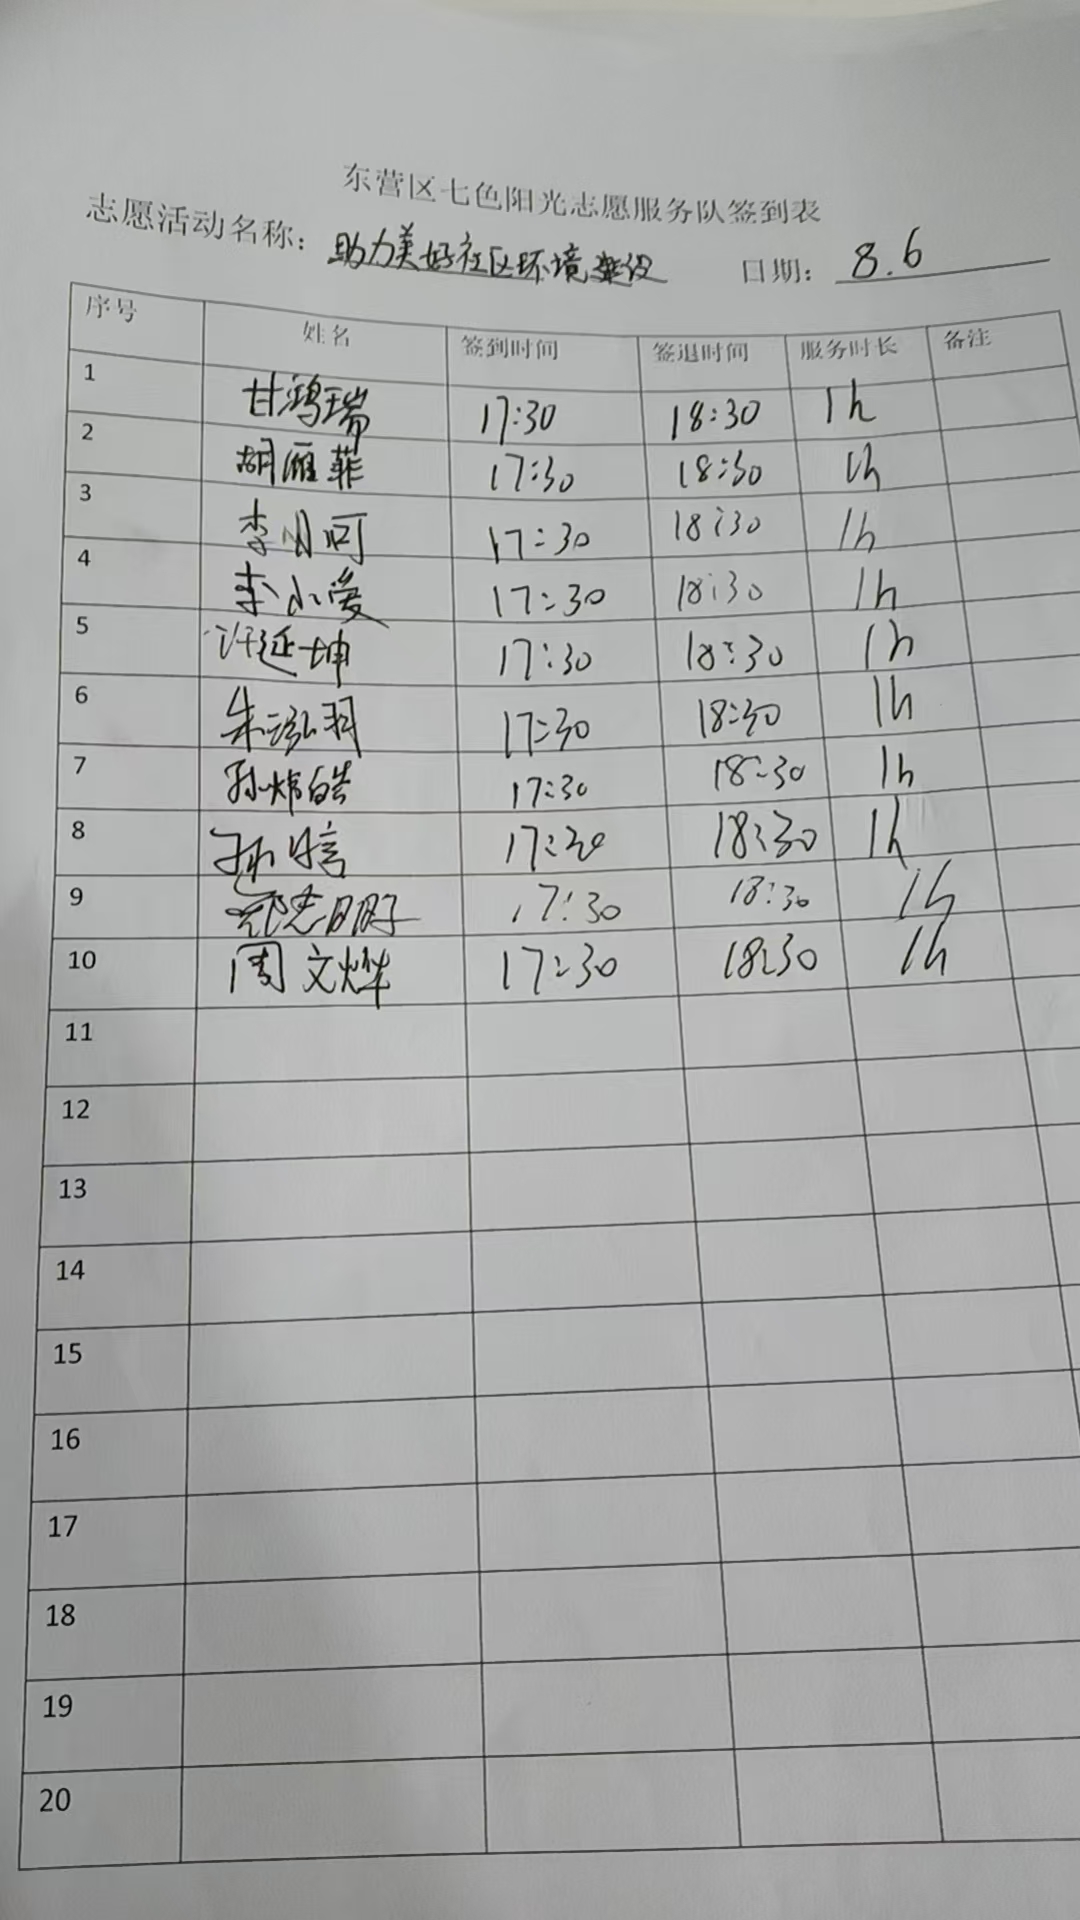 东营区七色阳光志愿服务队签到表
志愿活动名称： 助力美好社区环境建设 日期： 8.6
序号 姓名 签到时间 签退时间 服务时长 备注
1 甘鸿瑞 17:30 18:30 1h
2 胡雁菲 17:30 18:30 1h
3 李月呵 17:30 18:30 1h
4 李小爱 17:30 18:30 1h
5 许延坤 17:30 18:30 1h
6 朱泓羽 17:30 18:30 1h
7 孙炜皓 17:30 18:30 1h
8 孙 17:30 18:30 1h
9 17:30 18:30 1h
10 周文烨 17:30 18:30 1h
11
12
13
14
15
16
17
18
19
20